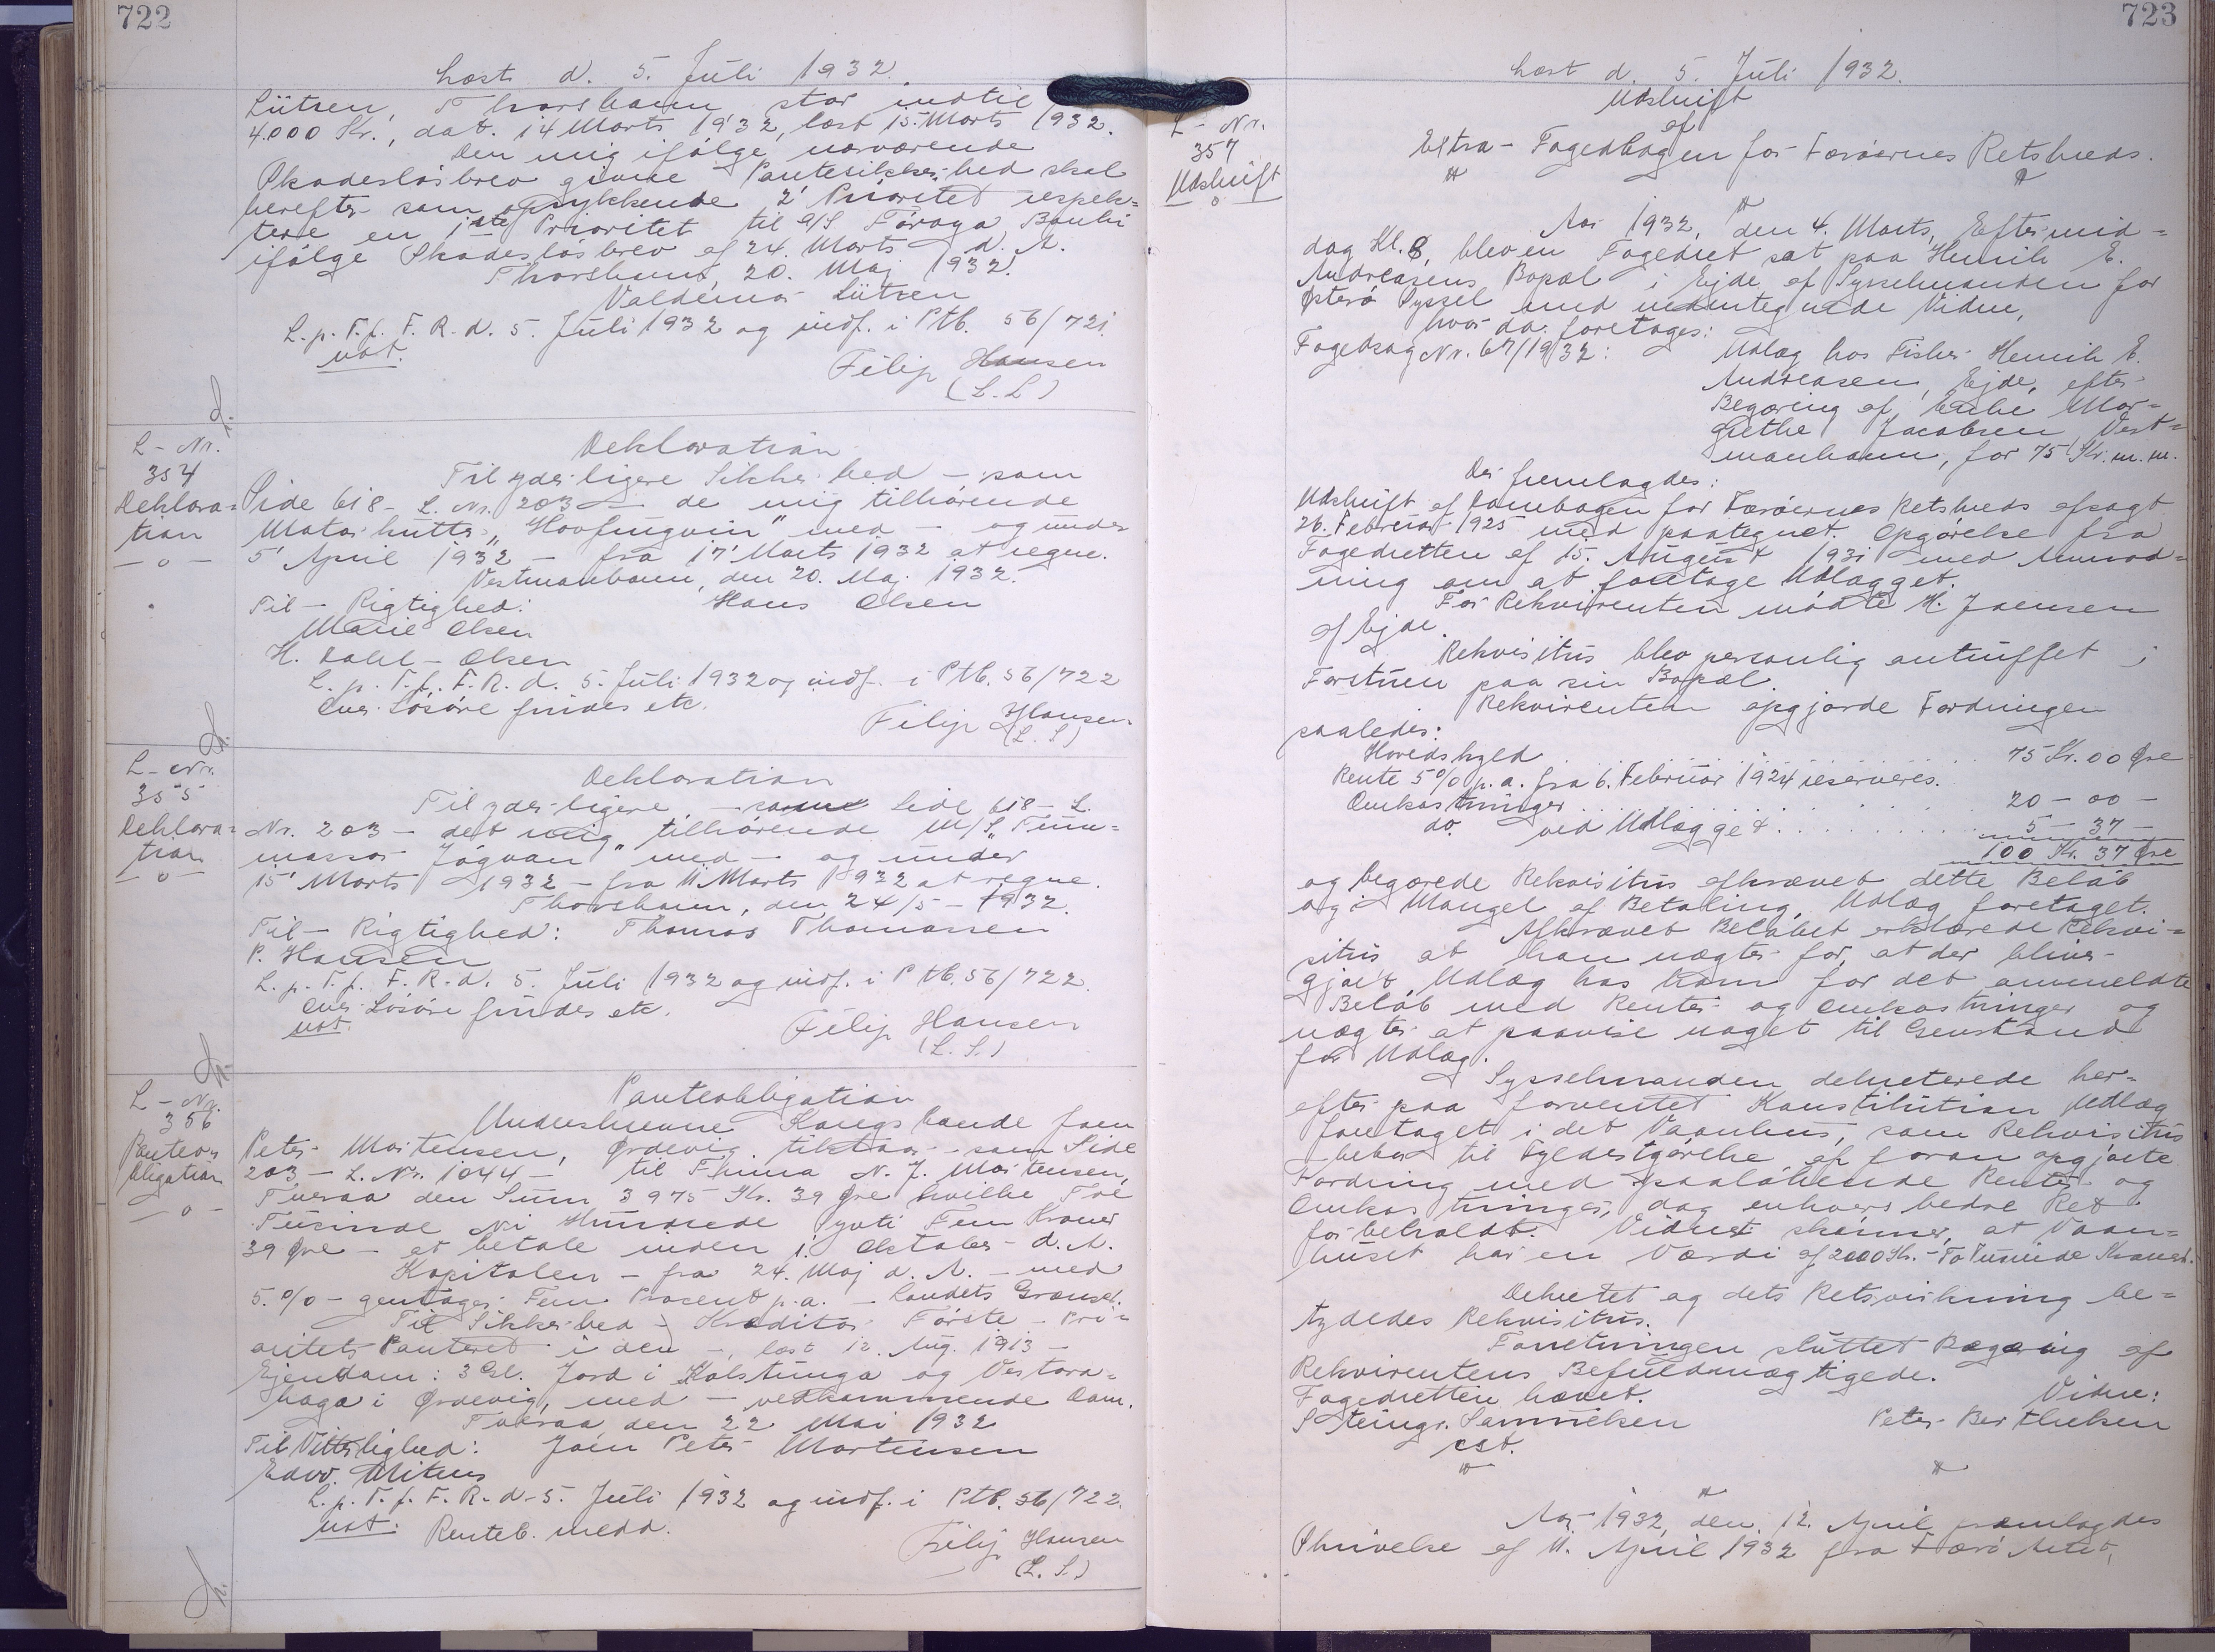 722
Læst d. 5. Juli 1932.
Lützen, Thorshavn stor indtil
4.000 Kr., dat. 14 Marts 1932, læst 15. Marts 1932.
Den mig ifølge nærværende
Skadesløsbrev givne Pantesikkerhed skal
herefter som oprykkende 2' Prioritet respek-
tere en 1ste Prioritet til A/S Føroya Banki
ifølge Skadesløsbrev af 24. Marts d. A.
Thorshavn, 20. Maj 1932.
Valdemar Lützen
L. p. T. f. F. R. d. 5. Juli 1932 og indf. i Ptb. 56/721.
not.
Filip Hansen
(L. S.)
L-Nr.
354
Deklara-
tion
-o-
Deklaration
Til yderligere Sikkerhed - som
Side 618 - L. Nr. 203 - de mig tilhørende
Motorkutter „Havfrugvin" med - og under
5' April 1932 - fra 17' Marts 1932 at regne.
Vestmanhavn, den 20. Maj 1932.
Til - Rigtighed: Hans Olsen
Marie Olsen
H. Dahl-Olsen
L. p. T. f. F. R. d. 5. Juli 1932 og indf. i Ptb. 56/722
Over Løsøre findes etc.
Filip Hansen
(L. S.)
L-Nr.
355
Deklara-
tion
-o-
Deklaration
Til yderligere - som Side 618 - L.
Nr. 203 - det mig tilhørende M/S „Tum-
massar Jógvan" med - og under
15' Marts 1932 - fra 11. Marts 1932 at regne.
Thorshavn, den 24/5 - 1932.
Til - Rigtighed: Thomas Thomassen
P. Hansen
L. p. T. f. F. R. d. 5. Juli 1932 og indf. i Ptb. 56/722.
Over Løsøre findes etc.
not.
Filip Hansen
(L. S.)
L-Nr.
356
Panteo-
bligation
-o-
Panteobligation
Underskrevne Kongsbonde Joen
Peter Mortensen, Ørdevig tilstaar - som Side
203 - L. Nr. 1044 - til Firma N. J. Mortensen,
Tveraa den Sum 3975 Kr. 39 Øre hvilke Tre
Tusinde Ni Hundrede Syvti Fem Kroner
39 Øre - at betale inden 1. Oktober d. A.
Kapitalen - fra 24. Maj d. A. - med
5. % - gentager Fem Procent p.a. - Landets Grænser.
Til Sikkerhed - Kreditor Første - Pri-
oritets Panteret i den -, læst 12. Aug. 1913 -
Ejendom: 3 Gl. Jord i Kolstunga og Vestara-
haga i Ørdevig, med - vedkommende Dom.
Tveraa, den 22 Mai 1932
Til Vitterlighed: Joen Peter Mortensen
Edw. Mitens
L. p. T. f. F. R. d. 5. Juli 1932 og indf. i Ptb. 56/722.
not. Renteb. medd.
Filip Hansen
(L. S.)
723
Læst d. 5. Juli 1932.
L-Nr.
357
Udskrift
-o-
Udskrift
af
Extra-Fogedbogen for Færøernes Retskreds.
Aar 1932, den 4. Marts, Eftermid-
dag Kl. 8, blev en Fogedret sat paa Henrik E.
Andreasens Bopæl i Ejde af Sysselmanden for
Østerø Syssel med medundertegnede Vidne,
hvor da foretages:
Fogedsag Nr. 67/1932: Udlæg hos Fisker Henrik E.
Andreasen, Ejde, efter
Begæring af Enke Mar-
grethe Jacobsen Vest-
manhavn, for 75 Kr. m. m.
Der fremlagdes:
Udskrift af Dombogen for Færøernes Retskreds afsagt
26. Februar 1925 med paategnet Opgørelse fra
Fogedretten af 15. August 1931 med Anmod-
ning om at foretage Udlægget.
For Rekvirenten mødte H. Joensen
af Ejde.
Rekvisitus blev personlig antruffet i
Forstuen paa sin Bopæl.
Rekvirenten opgjorde Fordringen
saaledes:
Hovedskyld . . . 75 Kr. 00 Øre
Rente 5 % p.a. fra 6. Februar 1924 reserveres.
Omkostninger . . . 20 - 00 -
do. ved Udlægget . . . 5 - 37 -
100 Kr. 37 Øre
og begærede Rekvisitus afkrævet dette Beløb
og i Mangel af Betaling, Udlæg foretaget.
Afkrævet Beløbet erklærede Rekvi-
situs at han nægter for, at der bliver
gjort Udlæg hos ham for det anmeldte
Beløb med Renter og Omkostninger og
nægter at paavise noget til Genstand
for Udlæg.
Sysselmanden dekreterede her-
efter paa forventet Konstitution Udlæg
foretaget i det Vaanhus, som Rekvisitus
bebor til Fyldestgørelse af foran opgjorte
Fordring med paaløbende Renter og
Omkostninger, dog enhvers bedre Ret
forbeholdt. Vidnet skønner, at Vaan-
huset har en Værdi af 2000 Kr. - To Tusinde Kroner.
Dekretet og dets Retsvirkning be-
tydedes Rekvisitus.
Forretningen sluttet Begæring af
Rekvirentens Befuldmægtigede.
Fogedretten hævet.
Vidne:
Steingr. Samuelsen Peter Berthelsen
cst.
Aar 1932, den 12. April fremlagdes
Skrivelse af 11. April 1932 fra Færø Amt,